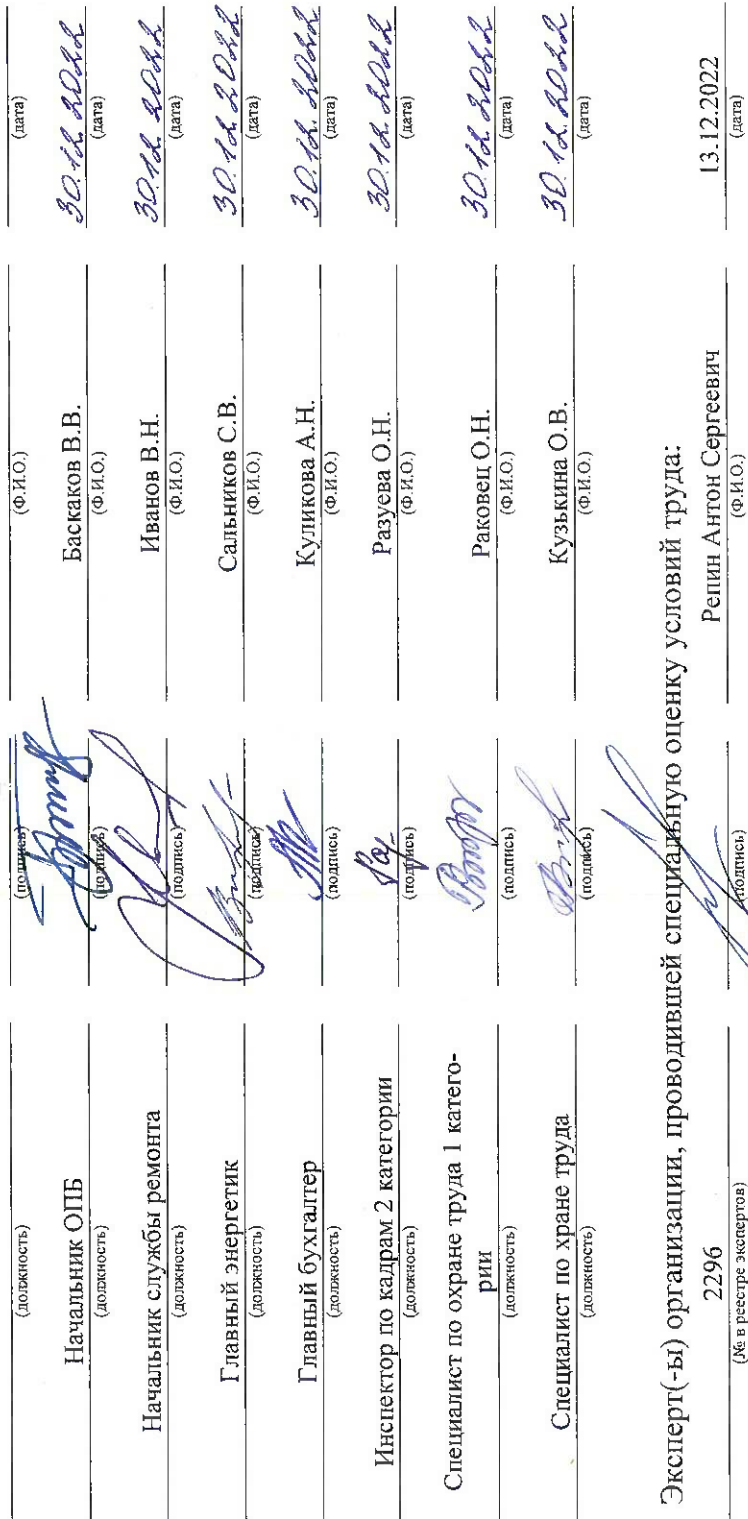 (должность) (подпись) (Ф.И.О.) (дата)
Начальник ОПБ Баскаков В.В. 30.12.2022
(должность) (подпись) (Ф.И.О.) (дата)
Начальник службы ремонта Иванов В.Н. 30.12.2022
(должность) (подпись) (Ф.И.О.) (дата)
Главный энергетик Сальников С.В. 30.12.2022
(должность) (подпись) (Ф.И.О.) (дата)
Главный бухгалтер Куликова А.Н. 30.12.2022
(должность) (подпись) (Ф.И.О.) (дата)
Инспектор по кадрам 2 категории Разуева О.Н. 30.12.2022
(должность) (подпись) (Ф.И.О.) (дата)
Специалист по охране труда 1 катего-
рии Раковец О.Н. 30.12.2022
(должность) (подпись) (Ф.И.О.) (дата)
Специалист по хране труда Кузькина О.В. 30.12.2022
(должность) (подпись) (Ф.И.О.) (дата)
Эксперт(-ы) организации, проводившей специальную оценку условий труда:
2296 Репин Антон Сергеевич 13.12.2022
(№ в реестре экспертов) (подпись) (Ф.И.О.) (дата)